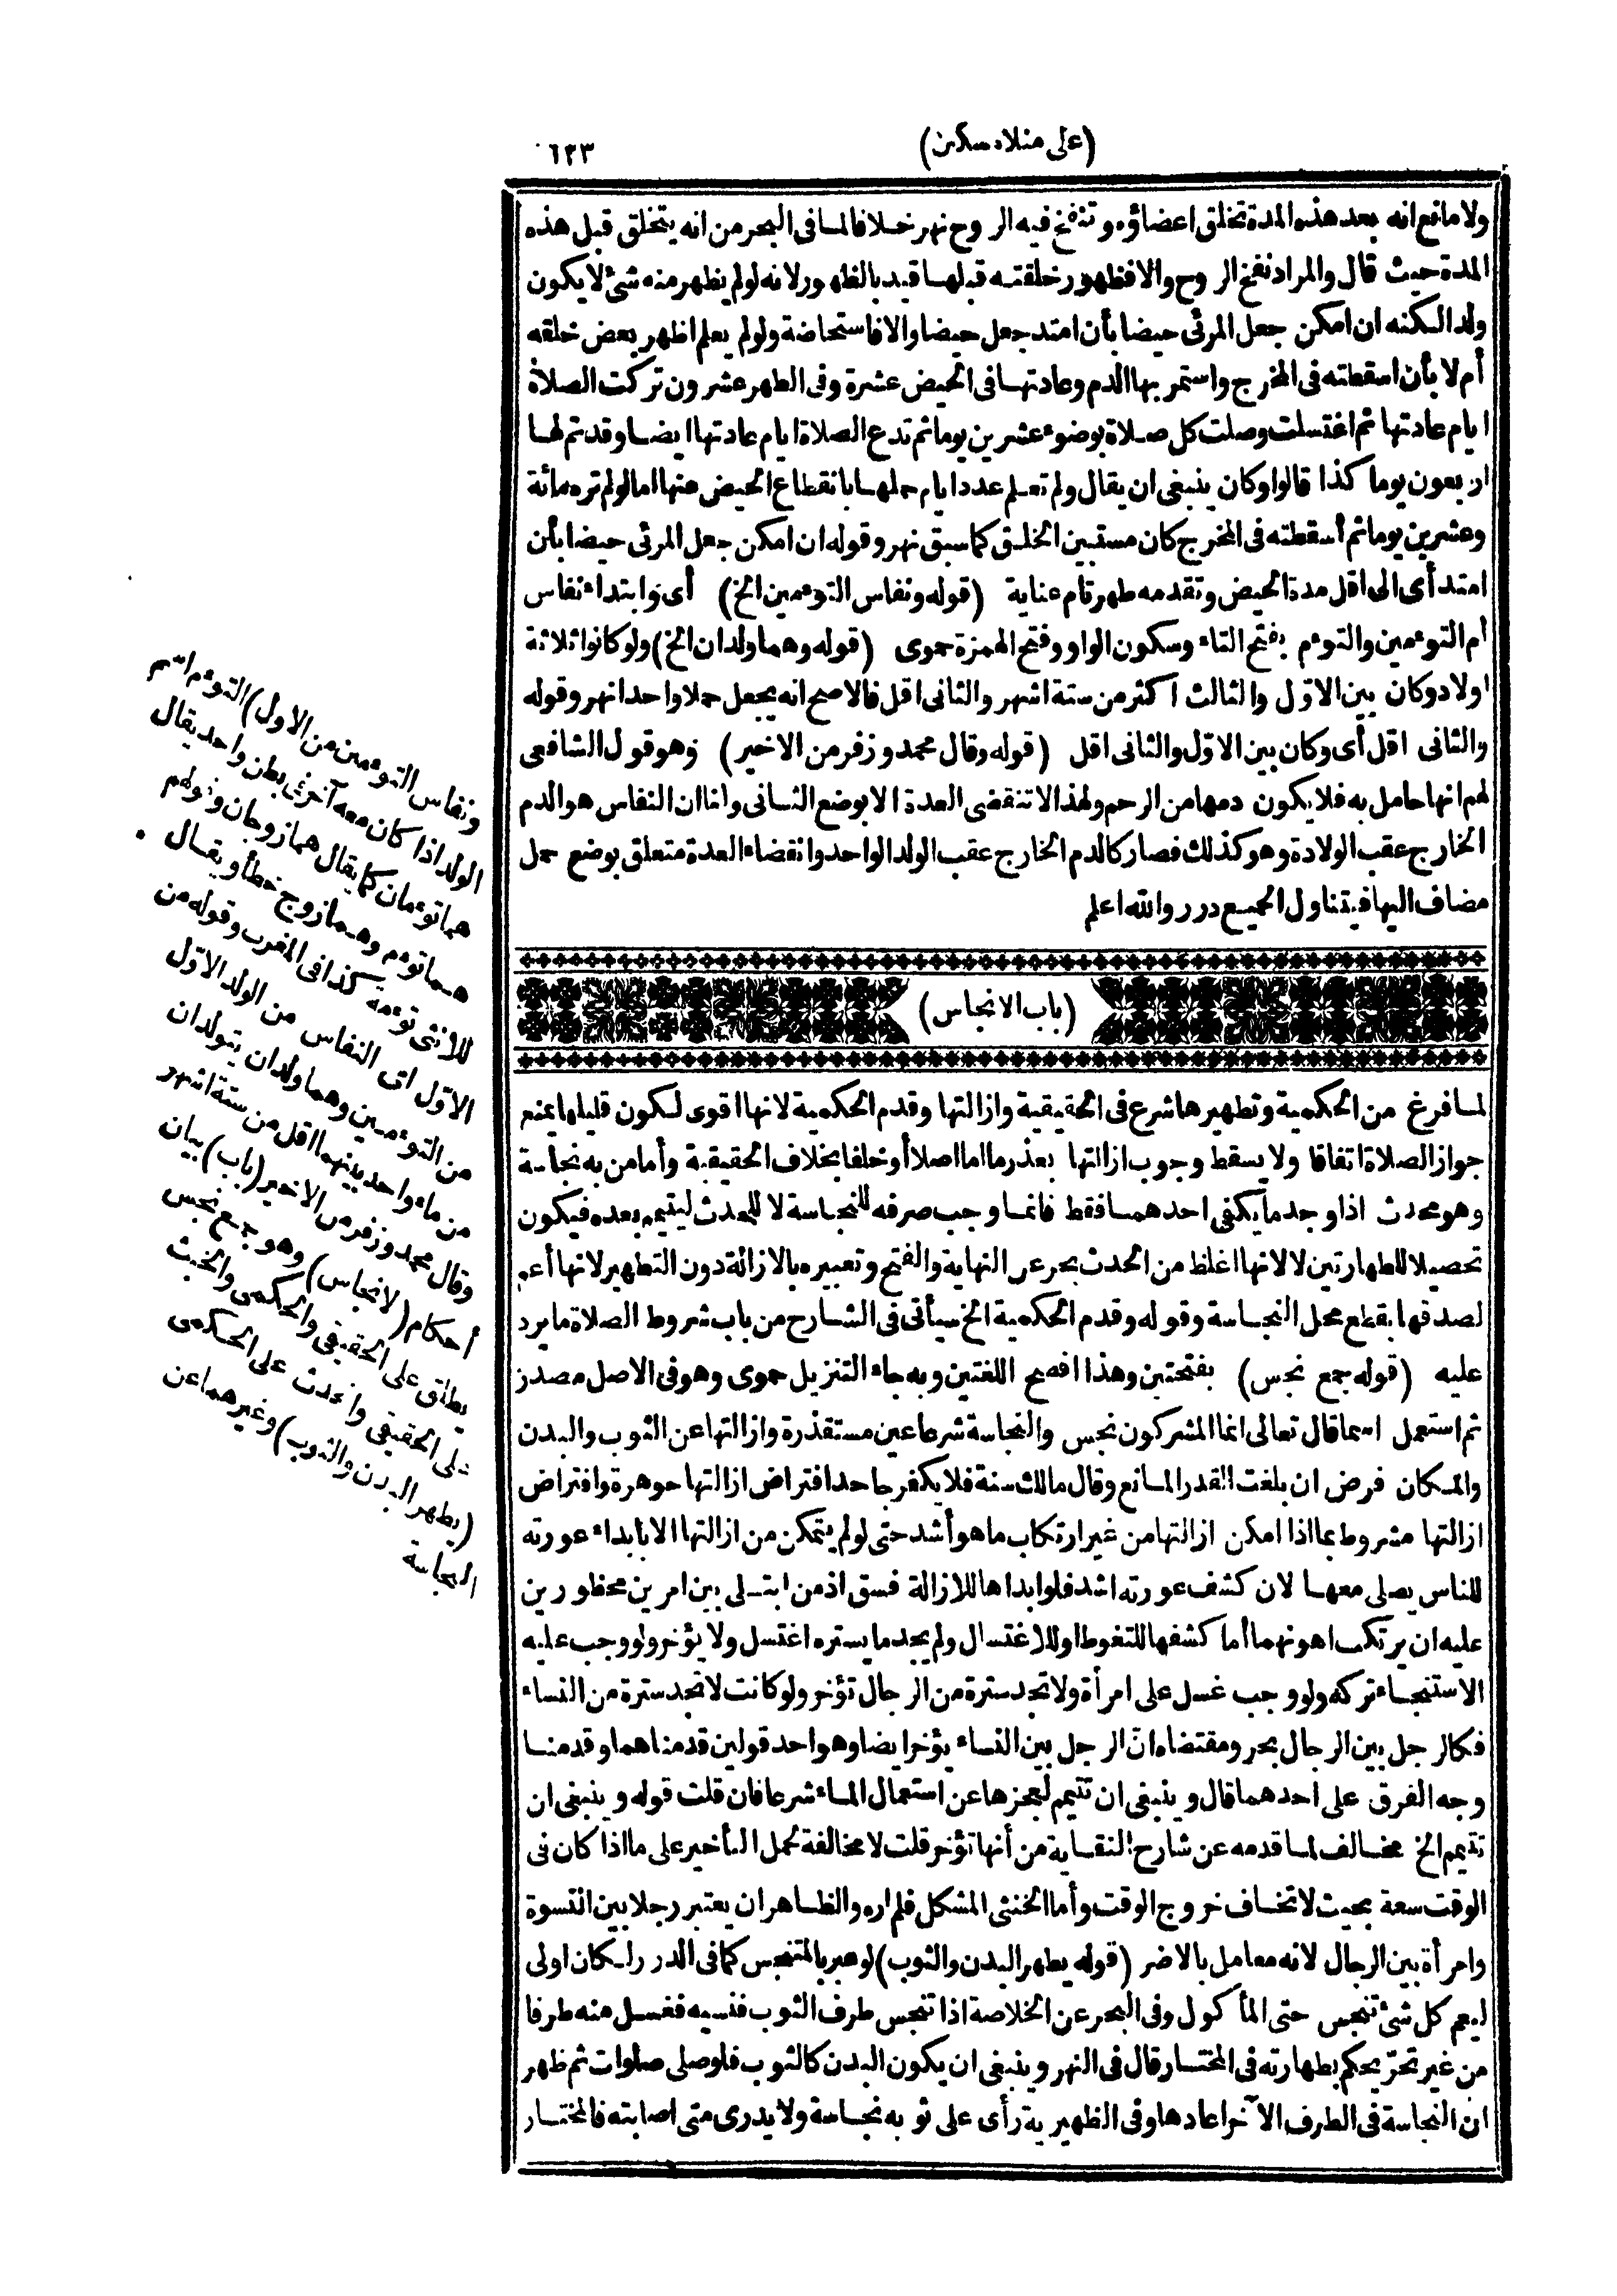 (على منلا مسكين)
١٢٣
ولا مانع انه بعد هذه المدة تخلق اعضاؤه وتنفخ فيه الروح نهر خلافا لما فى البحر من انه يتخلق قبل هذه
المدة حيث قال والمراد نفخ الروح والا فظهور خلقته قبلها قيد بالظهور لانه لولم يظهر منه شئ لا يكون
ولدا لكنه ان امكن جعل المرئى حيضا بأن امتد جعل حيضا والا فاستحاضة ولولم يعلم اظهر بعض خلقه
أم لا بأن اسقطته فى المخرج واستمر بها الدم وعادتها فى الحيض عشرة وفى الطهر عشرون تركت الصلاة
ايام عادتها ثم اغتسلت وصلت كل صلاة بوضوء عشرين يوما ثم تدع الصلاة ايام عادتها ايضا وقد تم لها
اربعون يوما كذا قالوا وكان ينبغى ان يقال ولم تعلم عدد ايام حملها بانقطاع الحيض عنها اما لولم تره مائة
وعشرين يوما ثم أسقطته فى المخرج كان مستبين الخلق كما سبق نهر وقوله ان امكن جعل المرئى حيضا بأن
امتد أى الى اقل مدة الحيض وتقدمه طهر تام عناية (قوله ونفاس التوءمين الخ) أى وابتداء نفاس
أم التوءمين والتوءم بفتح التاء وسكون الواو وفتح الهمزة حموى (قوله وهما ولدان الخ) ولو كانوا ثلاثة
اولاد وكان بين الاوّل والثالث اكثر من ستة اشهر والثانى اقل فالاصح انه يجعل حملا واحدا نهر وقوله
والثانى اقل أى وكان بين الاوّل والثانى اقل (قوله وقال محمد وزفر من الاخير) وهو قول الشافعى
لهم انها حامل به فلا يكون دمها من الرحم ولهذا لا تنقضى العدة الا بوضع الثانى ولنا ان النفاس هو الدم
الخارج عقب الولادة وهو كذلك فصار كالدم الخارج عقب الولد الواحد وانقضاء العدة متعلق بوضع حمل
مضاف اليها فيتناول الجميع درر والله اعلم
(باب الانجاس)
لما فرغ من الحكمية وتطهيرها شرع فى الحقيقية وازالتها وقدم الحكمية لانها اقوى لكون قليلها يمنع
جواز الصلاة اتفاقا ولا يسقط وجوب ازالتها بعذر ما اما اصلا أو خلفا بخلاف الحقيقية وأما من به نجاسة
وهو محدث اذا وجد ما يكفى احدهما فقط فانما وجب صرفه للنجاسة لا للحدث ليتيمم بعده فيكون
تحصيلا للطهارتين لا لانها اغلظ من الحدث بحر عن النهاية والفتح وتعبيره بالازالة دون التطهير لانها أعم
لصدقها بقطع محل النجاسة وقوله وقدم الحكمية الخ سيأتى فى الشارح من باب شروط الصلاة ما يرد
عليه (قوله جمع نجس) بفتحتين وهذا افصح اللغتين وبه جاء التنزيل حموى وهو فى الاصل مصدر
ثم استعمل اسما قال تعالى انما المشركون نجس والنجاسة شرعا عين مستقذرة وازالتها عن الثوب والبدن
والمكان فرض ان بلغت القدر المانع وقال مالك سنة فلا يكفر جاحد افتراض ازالتها جوهرة وافتراض
ازالتها مشروط بما اذا امكن ازالتها من غير ارتكاب ما هو أشد حتى لو لم يتمكن من ازالتها الا بابداء عورته
للناس يصلى معها لان كشف عورته اشد فلو ابداها للازالة فسق اذ من ابتلى بين امرين محظورين
عليه ان يرتكب اهونهما أما كشفها للتغوط اوللاغتسال ولم يجد ما يستره اغتسل ولا يؤخر ولو وجب عليه
الاستنجاء تركه ولو وجب غسل على امرأة ولا تجد سترة من الرجال تؤخر ولو كانت لا تجد سترة من النساء
فكالرجل بين الرجال بحر ومقتضاه ان الرجل بين النساء يؤخر ايضا وهو احد قولين قدمناهما وقدمنا
وجه الفرق على احدهما قال وينبغى ان تتيمم لعجزها عن استعمال الماء شرعا فان قلت قوله وينبغى ان
تتيمم الخ مخالف لما قدمه عن شارح النقاية من أنها تؤخر قلت لا مخالفة لحمل التأخير على ما اذا كان فى
الوقت سعة بحيث لا تخاف خروج الوقت وأما الخنثى المشكل فلم اره والظاهر ان يعتبر رجلا بين النسوة
وامرأة بين الرجال لانه معامل بالاضر (قوله يطهر البدن والثوب) لو عبر بالمتنجس كما فى الدرر لكان اولى
ليعم كل شئ تنجس حتى المأكول وفى البحر عن الخلاصة اذا تنجس طرف الثوب فنسيه فغسل منه طرفا
من غير تحرّ يحكم بطهارته فى المختار قال فى النهر وينبغى ان يكون البدن كالثوب فلو صلى صلوات ثم ظهر
ان النجاسة فى الطرف الآخر اعادها وفى الظهيرية رأى على ثوبه نجاسة ولا يدرى متى اصابته فالمختار
ونفاس التوءمين من الاول) التوءم اسم
الولد اذا كان معه آخر فى بطن واحد يقال
هما توءمان كما يقال هما زوجان وقولهم
هما توءم وهما زوج خطأ ويقال
للانثى توءمة كذا فى المغرب وقوله من
الاوّل اى النفاس من الولد الاوّل
من التوءمين وهما ولدان يتولدان
من ماء واحد بينهما اقل من ستة اشهر
وقال محمد وزفر من الاخير (باب) بيان
أحكام (الانجاس) وهو جمع نجس
يطلق على الحقيقى والحكمى والخبث
على الحقيقى والحدث على الحكمى
(يطهر البدن والثوب) وغيرهما عن
النجاسة